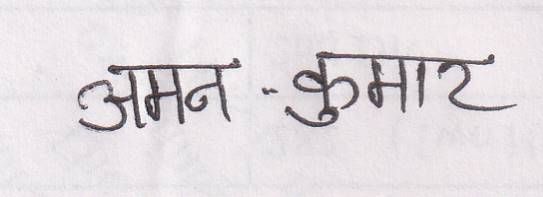 अमन - कुमार